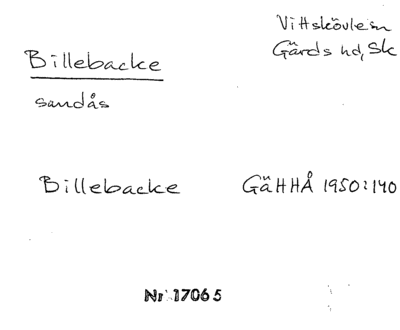 Vittskövle sn
Gärds hd, Sk
Billebacke
sandås
Billebacke GäHHÅ 1950:140
Nr 17065